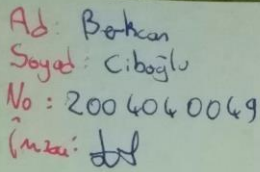 Ad: Berkcan
Soyad: Ciboğlu
No: 2004040049
İmza: